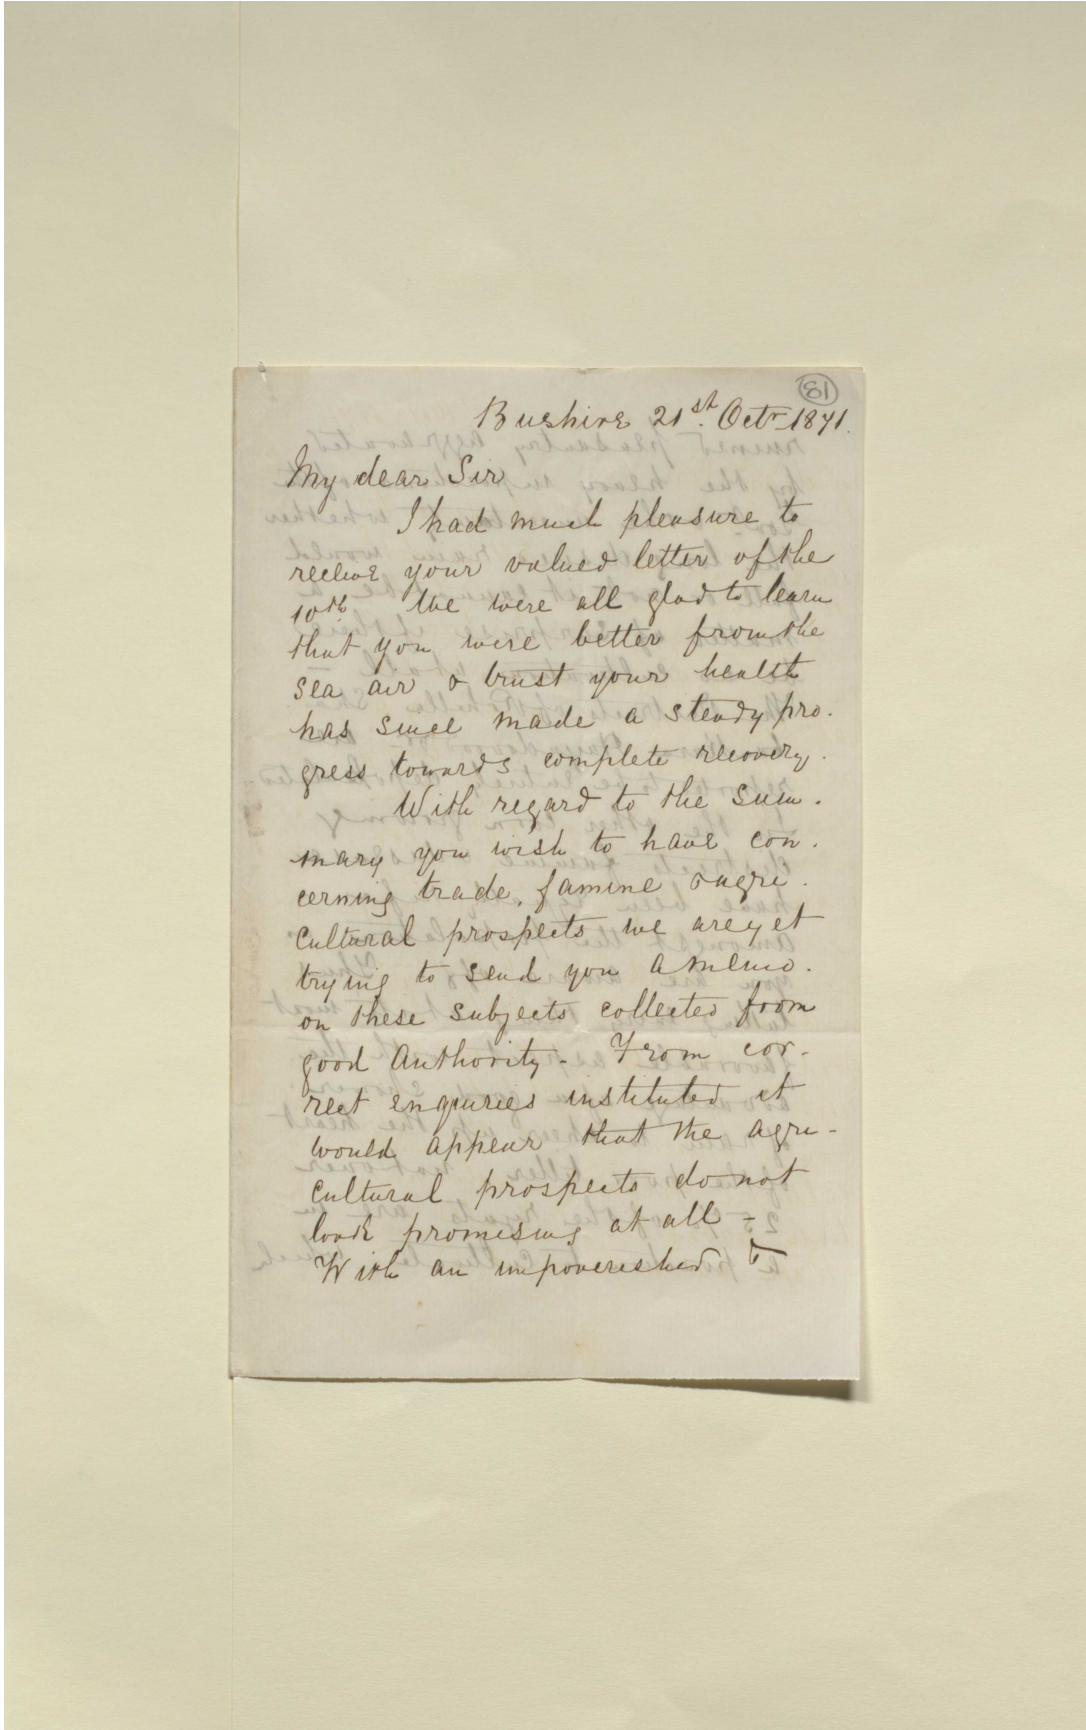 81
Bushire 21st. Octr 1871.
My dear Sir
I had much pleasure to
receive your valued letter of the
10th We were all glad to learn
that you were better from the
sea air & trust your health
has since made a steady pro.
gress towards complete recovery.
With regard to the Sum.
mary you wish to have con.
cerning trade, famine & agri.
cultural prospects we are yet
trying to send you a memo.
on these subjects collected from
good Authority. From cor-
rect enquiries instituted it
would appear that the agri-
cultural prospects do not
look promising at all -
With an impoverished &